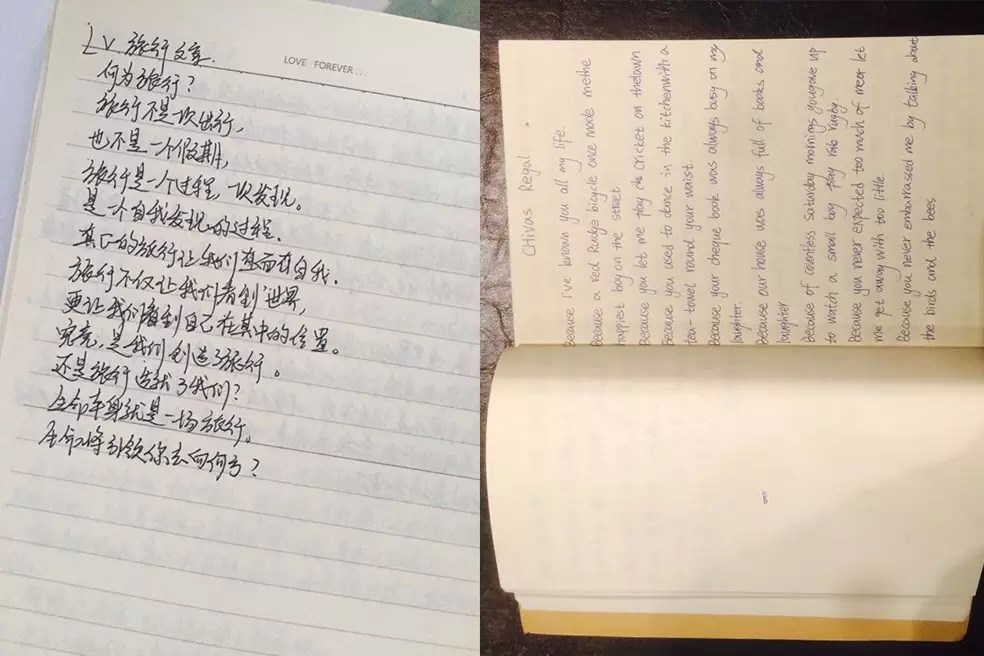 LV 旅行文案.
LOVE FOREVER...
何为旅行?
旅行不是一次出行,
也不是一个假期,
旅行是一个过程,一次发现。
是一个自我发现的过程.
真正的旅行让我们直面自我.
旅行不仅让我们看到世界,
更让我们看到自己在其中的位置。
究竟,是我们创造了旅行。
还是旅行造就了我们?
生命本身就是一场旅行。
生命将引领你去向何方?
CHivas Regal
Because i've known you all my life.
Because a red Rudge bicycle once made methe
happiest boy on the street
Because you let me play cricket on thelawn
Because you used to dance in the kitchenwith a
tea-towel round your waist.
Because your cheque book was always busy on my
laughter.
Because our house was always full of books and
laughter
Because of countless saturday mornings yougave up
to watch a small boy play rugby.
Because you never expected too much of meor let
me get away with too little.
Because you never embarrassed me by talking about
the birds and the bees.